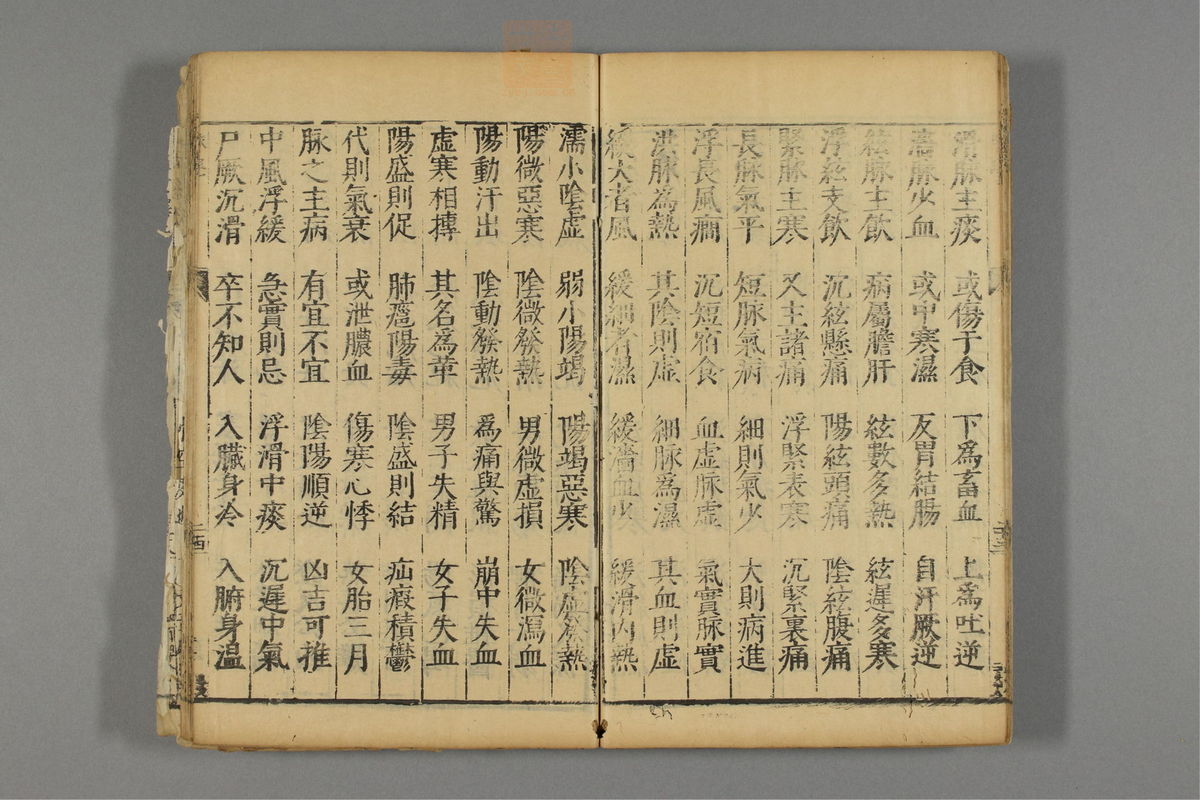 滑脉主痰 或傷于食 下為畜血 上為吐逆
濇脉少血 或中寒濕 反胃結腸 自汗厥逆
絃脉主飲 病屬膽肝 絃數多熱 絃遲多寒
浮絃支飲 沉絃懸痛 陽絃頭痛 陰絃腹痛
緊脉主寒 又主諸痛 浮緊表寒 沉緊裏痛
長脉氣平 短脉氣病 細則氣少 大則病進
浮長風癎 沉短宿食 血虛脉虛 氣實脉實
洪脉為熱 其陰則虛 細脉為濕 其血則虛
緩大者風 緩細者濕 緩濇血少 緩滑內熱
濡小陰虛 弱小陽竭 陽竭惡寒 陰虛發熱
陽微惡寒 陰微發熱 男微虛損 女微瀉血
陽動汗出 陰動發熱 為痛與驚 崩中失血
虛寒相摶 其名為革 男子失精 女子失血
陽盛則促 肺癰陽毒 陰盛則結 疝瘕積鬱
代則氣衰 或泄膿血 傷寒心悸 女胎三月
脉之主病 有宜不宜 陰陽順逆 凶吉可推
中風浮緩 急實則忌 浮滑中痰 沉遲中氣
尸厥沉滑 卒不知人 入臟身冷 入腑身溫